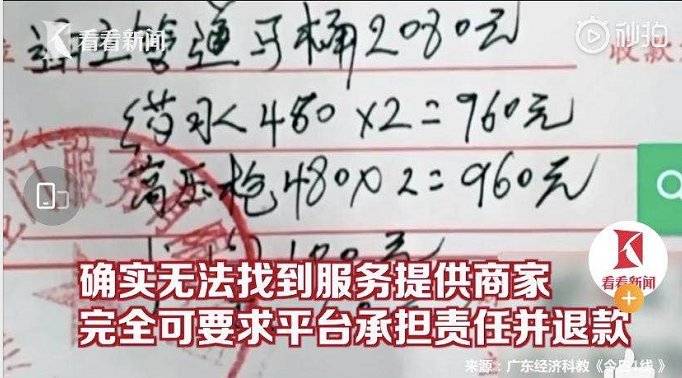 看看新闻
秒拍
通马桶2080元
收款
药水480×2=960元
高压枪480×2=960元
门服务
看看新闻
确实无法找到服务提供商家
完全可要求平台承担责任并退款
来源：广东经济科教《今日1线》